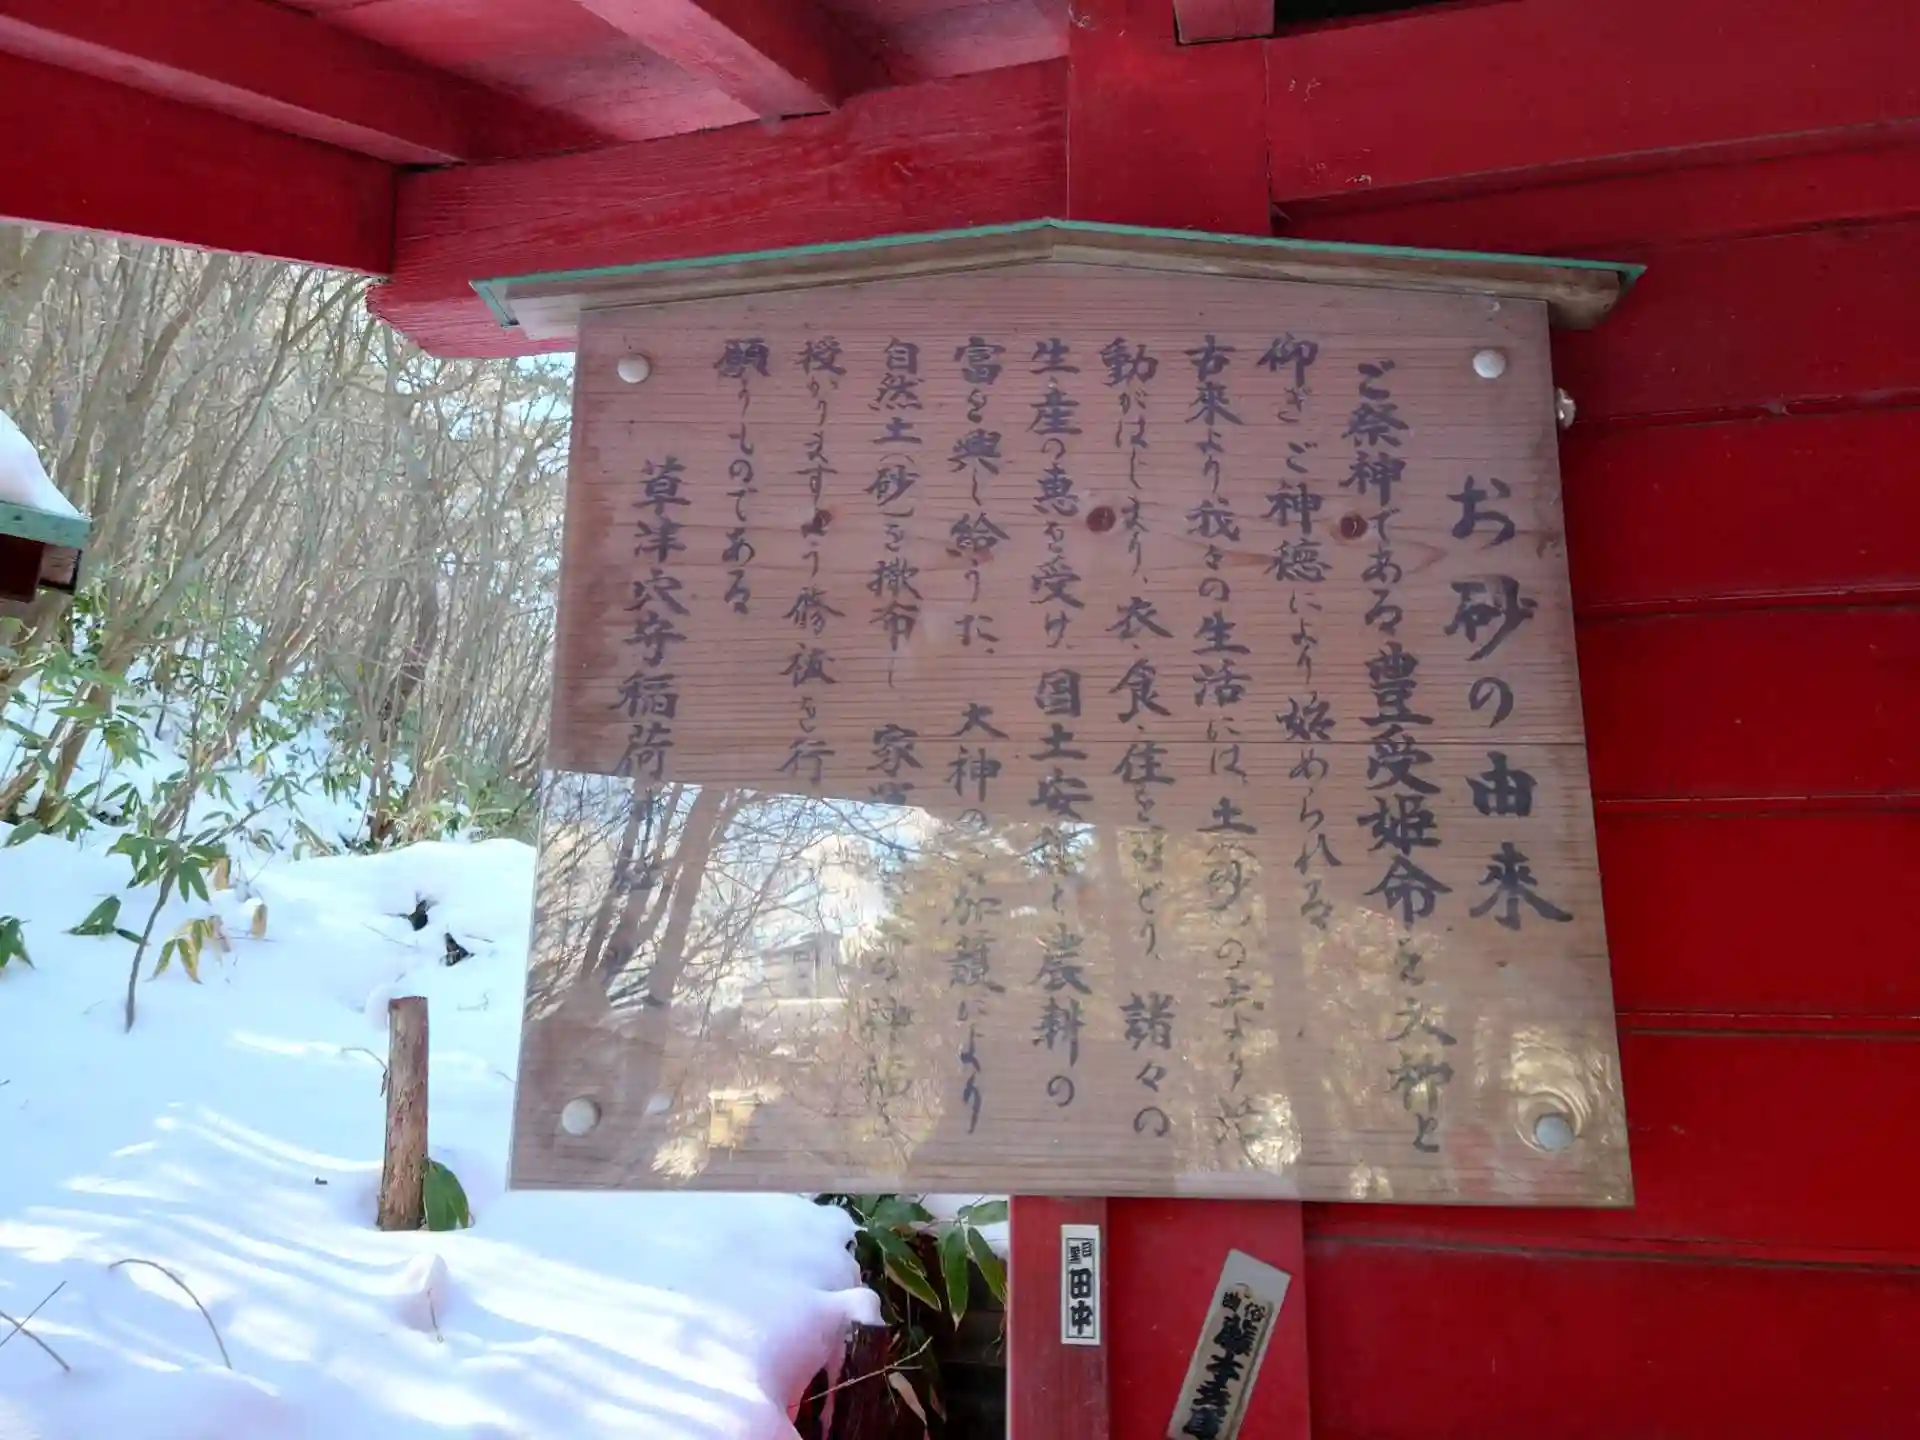 お砂の由来
ご祭神である豊受姫命を大神と
仰ぎご神徳により始められる
古来より我々の生活には、土(砂)の上より活
動がはじまり、衣、食、住を、
諸々の
生産の恵を受け、国土安
と農耕の
富を興し給うた、大神の
加護により
自然土(砂)を撒布し 家
授かりますよう修祓を行
願うものである
草津穴守稲荷神社
目黒
田中